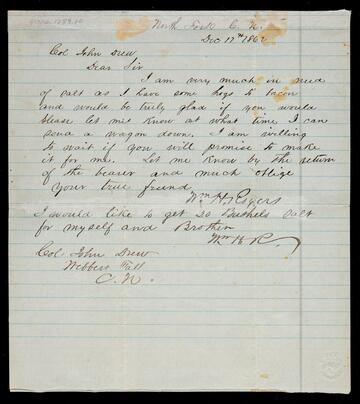 North Fork C. N.
Dec 17th 1862
Col John Drew
Dear Sir
I am very much in need
of salt as I have some hogs to bacon
and would be truly glad if you would
please let me know at what time I can
send a wagon down. I am willing
to wait if you will promise to make
it for me. Let me know by the return
of the bearer and much oblige
your true friend
Wm H. Rogers
I would like to get 20 Bushels salt
for myself and Brother
Wm H R.
Col John Drew
Webbers Fall
C. N.